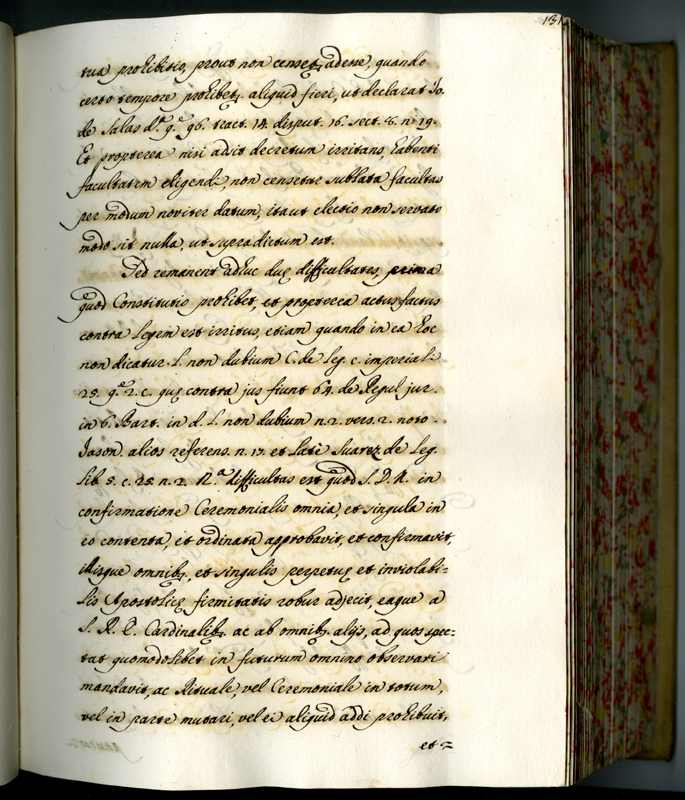 131
tua prohibitio, prout non censetur adesse, quando
certo tempore prohibetur aliquid fieri, ut declarat Jo.
de Salas d.ª q.ᵉ 96. tract. 14. disput. 16. sect. 8. n. 19.
Et propterea nisi adsit decretum irritans, habenti
facultatem eligendi, non censetur sublata facultas
per modum noviter datum, ita ut electio non servato
modo sit nulla, ut supra dictum est.
Sed remanent adhuc duę difficultates, prima
quod Constitutio prohibet, et propterea actus factus
contra legem est irritus, etiam quando in ea hoc
non dicatur. l. non dubium C. de leg. c. imperiali
25. q.ᵉ 2. c. quę contra jus fiunt 64. de Regul jur.
in 6. Bart. in d. l. non dubium n. 2. vers. 2. noto
Jason. alios referens. n. 17. et latè Suarez de leg.
lib. 5. c. 25. n. 2. difficultas est quod S. D. N. in
confirmatione Ceremonialis omnia, et singula in
eo contenta, et ordinata approbavit, et confirmavit,
illisque omnibꝫ, et singulis perpetuę et inviolabi=
lis Apostolicę firmitatis robur adjecit, eaque a
S. R. E. Cardinalibꝫ ac ab omnibꝫ alijs, ad quos spec=
tat quomodolibet in futurum omnino observari
mandavit, ac Rituale, vel Ceremoniale in totum,
vel in parte mutari, vel ei aliquid addi prohibuit,
et